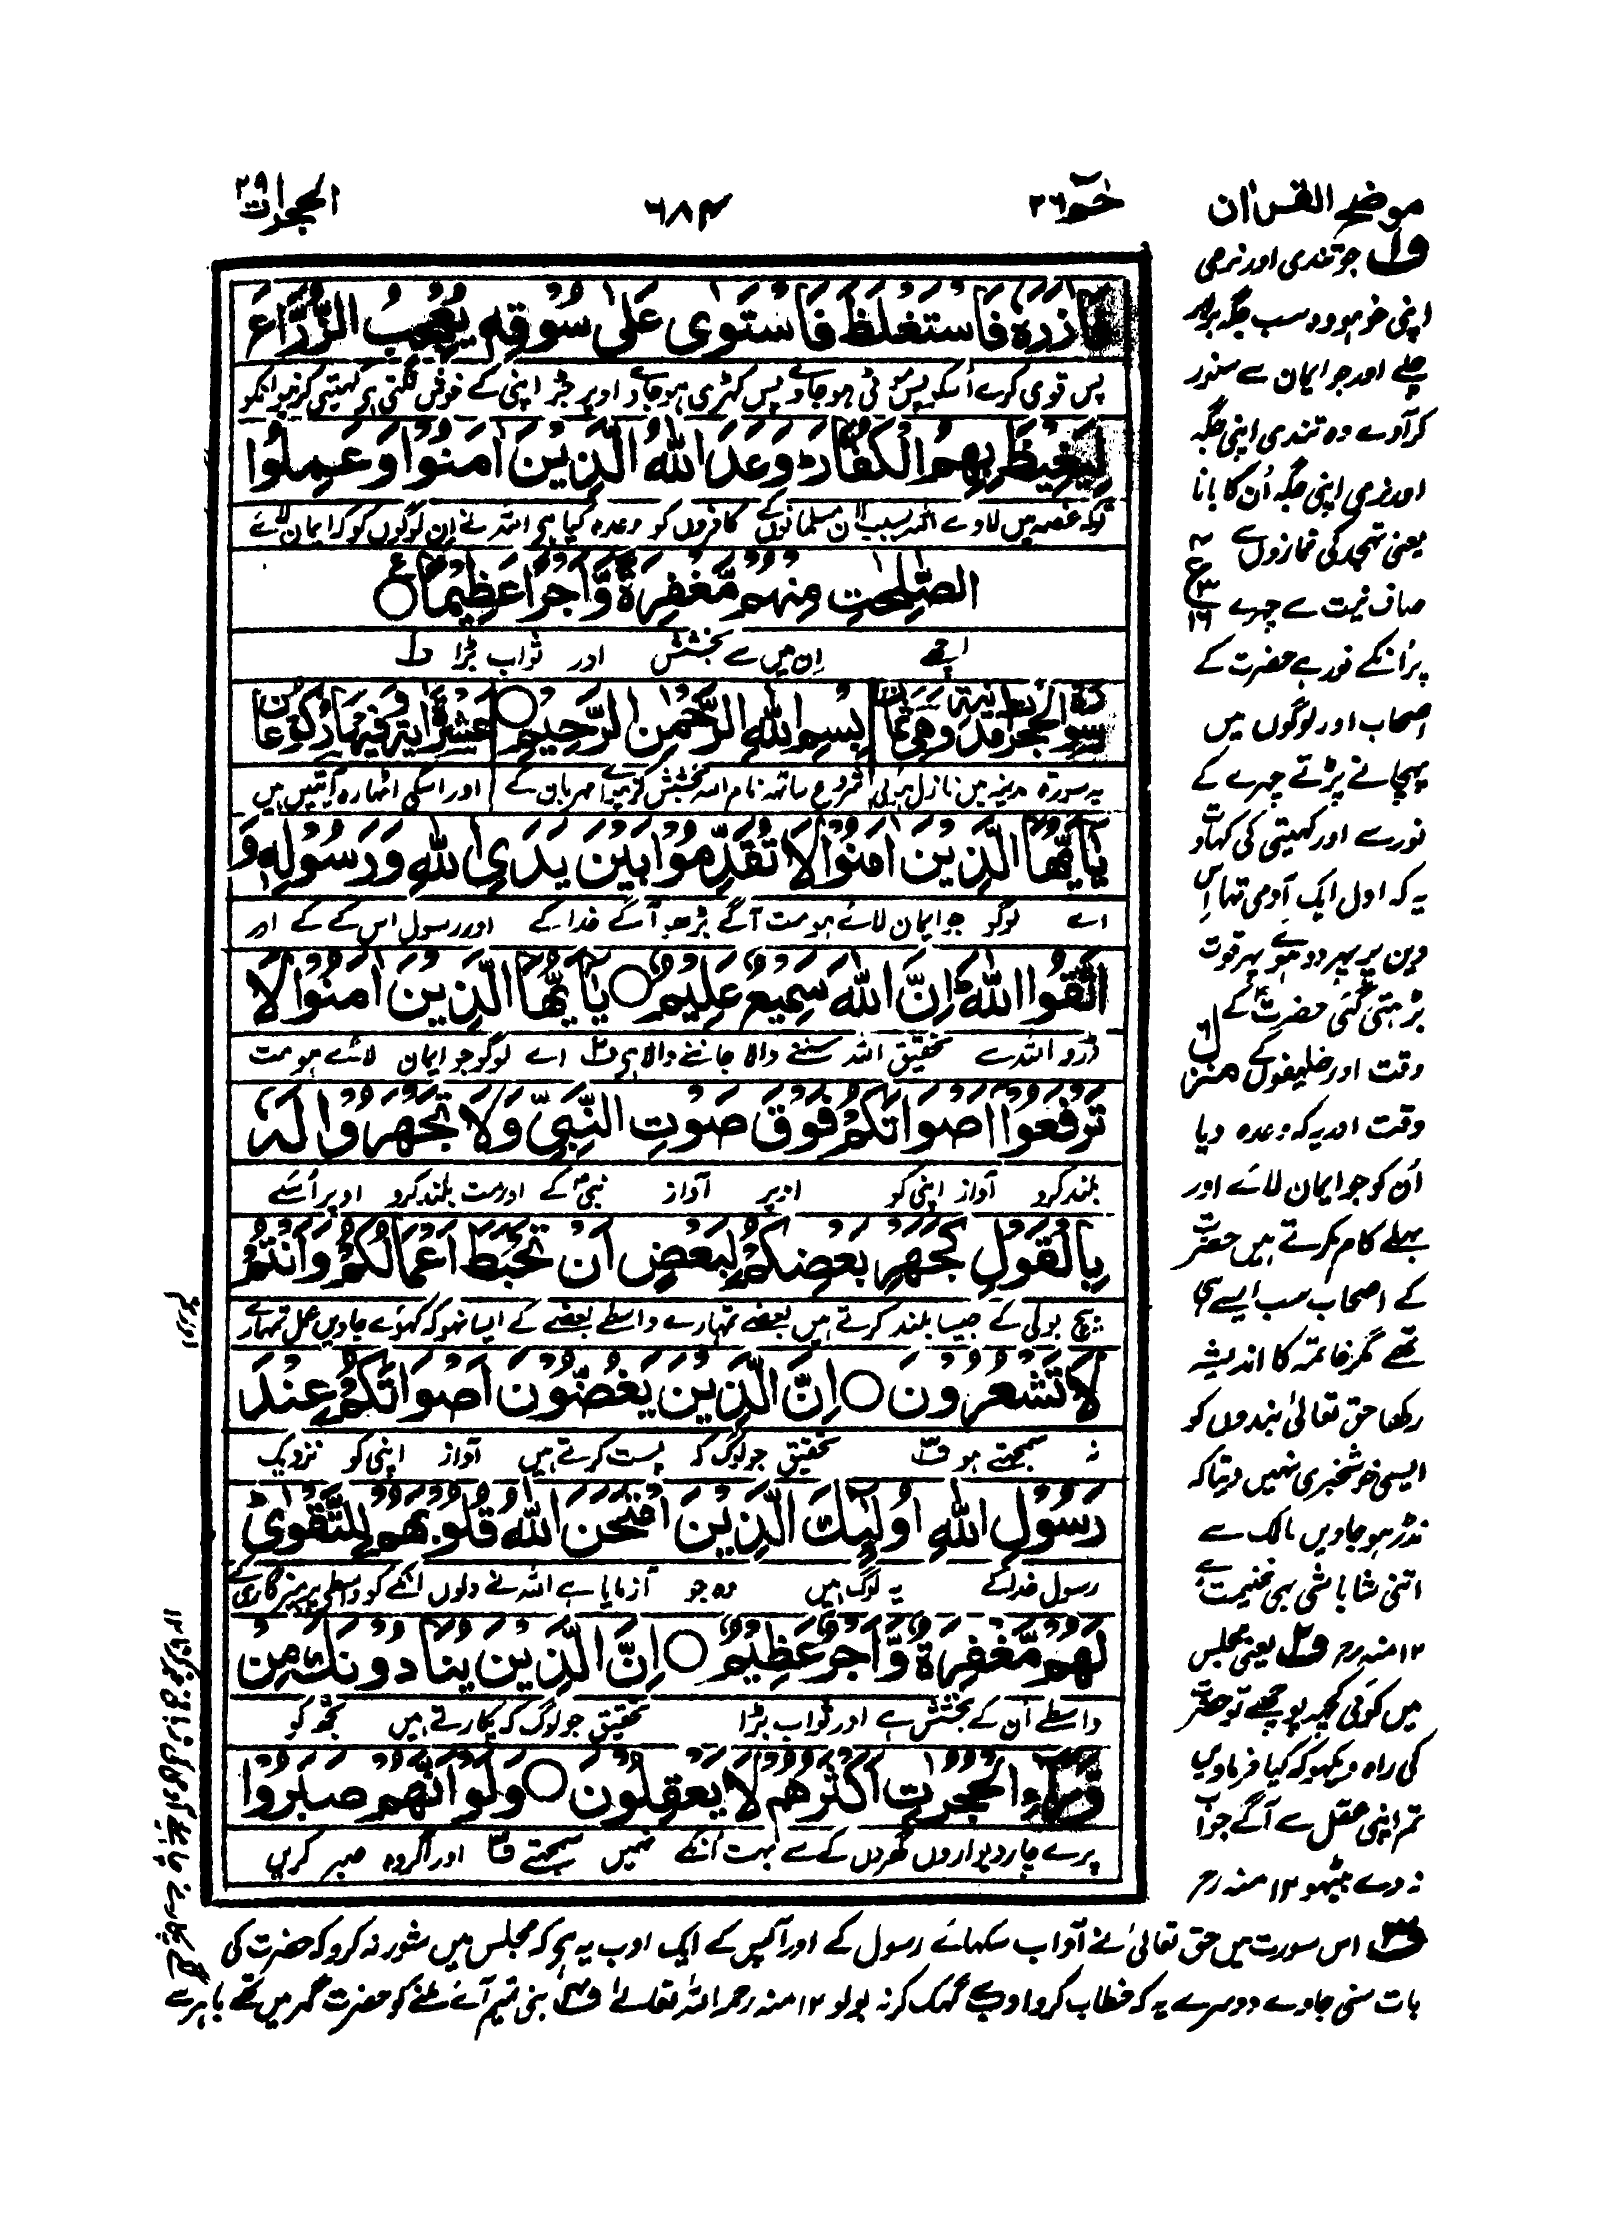 موضح القرآن
حٰمٓ ۲۶
۶۸۴
الحجرات ۴۹
فَاٰزَرَهٗ فَاسْتَغْلَظَ فَاسْتَوٰى عَلٰى سُوْقِهٖ يُعْجِبُ الزُّرَّاعَ
پس قوی کرے اُسکو پس موٹی ہو جاوے پس کھڑی ہو جاوے اوپر جڑ اپنی کے خوش لگتی ہے کھیتی کرنیوالونکو
لِيَغِيْظَ بِهِمُ الْكُفَّارَ وَعَدَ اللّٰهُ الَّذِيْنَ اٰمَنُوْا وَعَمِلُوا
توکہ غصہ میں لاوے اللہ بسبب ان مسلمانوں کے کافروں کو وعدہ کیا ہے اللہ نے اِن لوگوں کو کہ ایمان لائے
الصّٰلِحٰتِ مِنْهُمْ مَّغْفِرَةً وَّاَجْرًا عَظِيْمًا ○
اچھے اِن میں سے بخشش اور ثواب بڑا ف۱
سورة الحجرات مدنية وهي ثمان
بِسْمِ اللّٰهِ الرَّحْمٰنِ الرَّحِيْمِ ○
عشرة اٰية وفيها ركوعان
یہ سورة مدینہ میں نازل ہوئی شروع ساتھ نام اللہ بخشش کرنیوالے مہربان کے اور اسکی اٹھارہ آیتیں ہیں
يٰٓاَيُّهَا الَّذِيْنَ اٰمَنُوْا لَا تُقَدِّمُوْا بَيْنَ يَدَيِ اللّٰهِ وَرَسُوْلِهٖ وَ
اے لوگو جو ایمان لائے ہو مت آگے بڑھو آگے خدا کے اور رسول اس کے کے اور
اتَّقُوا اللّٰهَ اِنَّ اللّٰهَ سَمِيْعٌ عَلِيْمٌ ○ يٰٓاَيُّهَا الَّذِيْنَ اٰمَنُوْا لَا
ڈرو اللہ سے تحقیق اللہ سننے والا جاننے والا ہے ف۲ اے لوگو جو ایمان لائے ہو مت
تَرْفَعُوْٓا اَصْوَاتَكُمْ فَوْقَ صَوْتِ النَّبِيِّ وَلَا تَجْهَرُوْا لَهٗ
بلند کرو آواز اپنی کو اوپر آواز نبی کے اور مت بلند کرو اوپر اُسکے
بِالْقَوْلِ كَجَهْرِ بَعْضِكُمْ لِبَعْضٍ اَنْ تَحْبَطَ اَعْمَالُكُمْ وَاَنْتُمْ
بیچ بولی کے جیسا بلند کرتے ہیں بعضے تمہارے واسطے بعضے کے ایسا نہو کہ کھوئے جاویں عمل تمہارے
اور تم
لَا تَشْعُرُوْنَ ○ اِنَّ الَّذِيْنَ يَغُضُّوْنَ اَصْوَاتَهُمْ عِنْدَ
نہ سمجھتے ہو ف۳ تحقیق جو لوگ کہ پست کرتے ہیں آواز اپنی کو نزدیک
رَسُوْلِ اللّٰهِ اُولٰٓئِكَ الَّذِيْنَ امْتَحَنَ اللّٰهُ قُلُوْبَهُمْ لِلتَّقْوٰى
رسول خدا کے یہ لوگ ہیں وہ جو آزمایا ہے اللہ نے دلوں انکے کو واسطے پرہیزگاری کے
لَهُمْ مَّغْفِرَةٌ وَّاَجْرٌ عَظِيْمٌ ○ اِنَّ الَّذِيْنَ يُنَادُوْنَكَ مِنْ
واسطے اُن کے بخشش ہے اور ثواب بڑا تحقیق جو لوگ کہ پکارتے ہیں تجھ کو
وَّرَآءِ الْحُجُرٰتِ اَكْثَرُهُمْ لَا يَعْقِلُوْنَ ○ وَلَوْ اَنَّهُمْ صَبَرُوْا
پرے چار دیواروں گھروں کے سے بہت اُنکے نہیں سمجھتے ف۴ اور اگر وہ صبر کریں
ف۱ جو تندی اور نرمی
اپنی خو ہو وہ سب جگہ برابر
چلے اور جو ایمان سے سنور
کر آوے وہ تندی اپنی جگہ
اور نرمی اپنی جگہ اُن کا بانا
یعنی تہجد کی نمازوں سے
صاف نیت سے چہرے
پر اُنکے نور ہے حضرت کے
اصحاب اور لوگوں میں
پہچانے پڑتے چہرے کے
نور سے اور کھیتی کی کہاوت
یہ کہ اول ایک آدمی تھا اس
دین پر پھر دو ہوئے پھر قوت
بڑھتی گئی حضرت کے
وقت اور خلیفوں کے
وقت اور یہ کہ وعدہ دیا
اُن کو جو ایمان لائے اور
بھلے کام کرتے ہیں حضرت
کے اصحاب سب ایسے ہی
تھے مگر خاتمہ کا اندیشہ
رکھا حق تعالیٰ بندوں کو
ایسی خوشخبری نہیں دیتا کہ
نڈر ہو جاویں مالک سے
اتنی شاباشی بھی غنیمت ہے
۱۲ منہ رح ف۲ یعنی مجلس
میں کوئی کچھ پوچھے تو حضرت
کی راہ دیکھو کہ کیا فرماویں
تم اپنی عقل سے آگے جواب
نہ دے بیٹھو ۱۲ منہ رح
ف۳ اس سورت میں حق تعالیٰ نے آداب سکھائے رسول کے اور آپس کے ایک ادب یہ ہے کہ مجلس میں شور نہ کرو کہ حضرت کی
بات سنی جاوے دوسرے یہ کہ خطاب کرو ادب سے گھمک کر نہ بولو ۱۲ منہ رحمہ اللہ تعالےٰ ف۴ بنی تمیم آئے ملنے کو حضرت گھر میں تھے باہر سے
لگے پکارنے